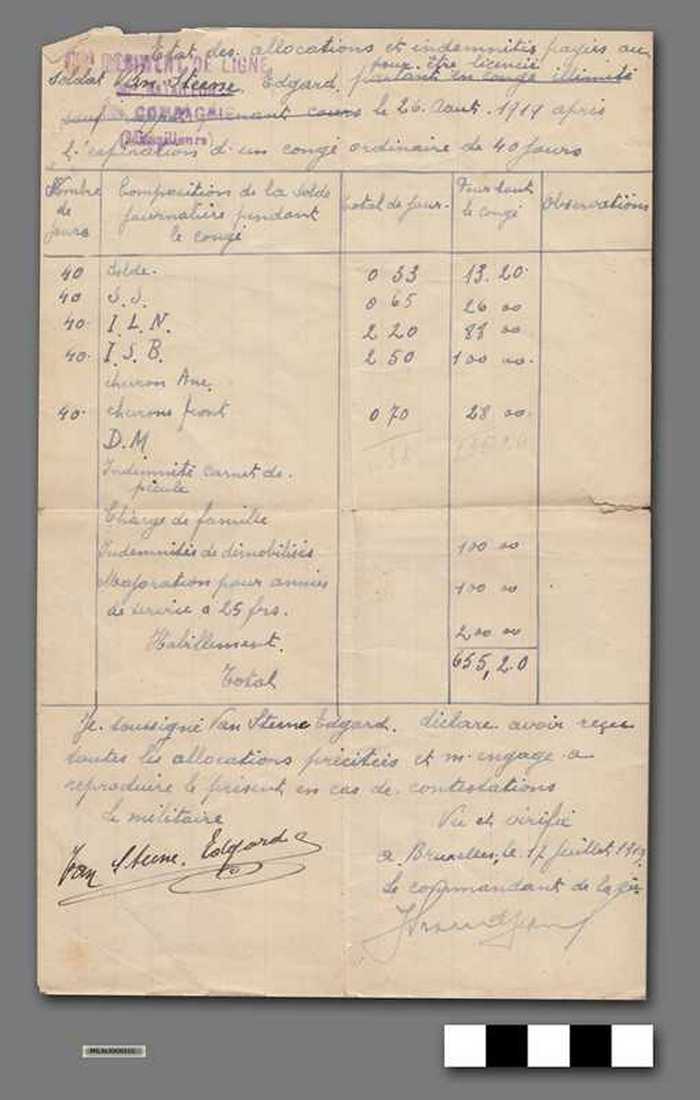 Etat des allocations et indemnités payées au
REGIMENT DE LIGNE
pour être licencié
soldat Van Steene Edgard, partant en congé illimité
COMPAGNIE
cours le 26 Aout 1919 après
l'expiration d'un congé ordinaire de 40 jours
Nombre de jours | Composition de la solde journalière pendant le congé | total de jour. | Pour tout le congé | Observations
40 Solde. 0 33 13.20
40 S.S. 0 65 26 00
40 I.L.N. 2 20 88 00
40 I.S.B. 2 50 100 00
chevron Anc.
40 chevrons front 0 70 28 00
D.M
Indemnité carnet de
pécule
Charge de famille
Indemnités de démobilisés 100 00
Majoration pour années 100 00
de service à 25 frs.
Habillement. 200 00
Total 655,20
Je soussigné Van Steene Edgard. déclare avoir reçu
toutes les allocations précitées et m'engage à
reproduire le présent en cas de contestations
Le militaire Vu et vérifié
Van Steene. Edgard à Bruxelles, le 17 juillet 1919
Le commandant de la Cie